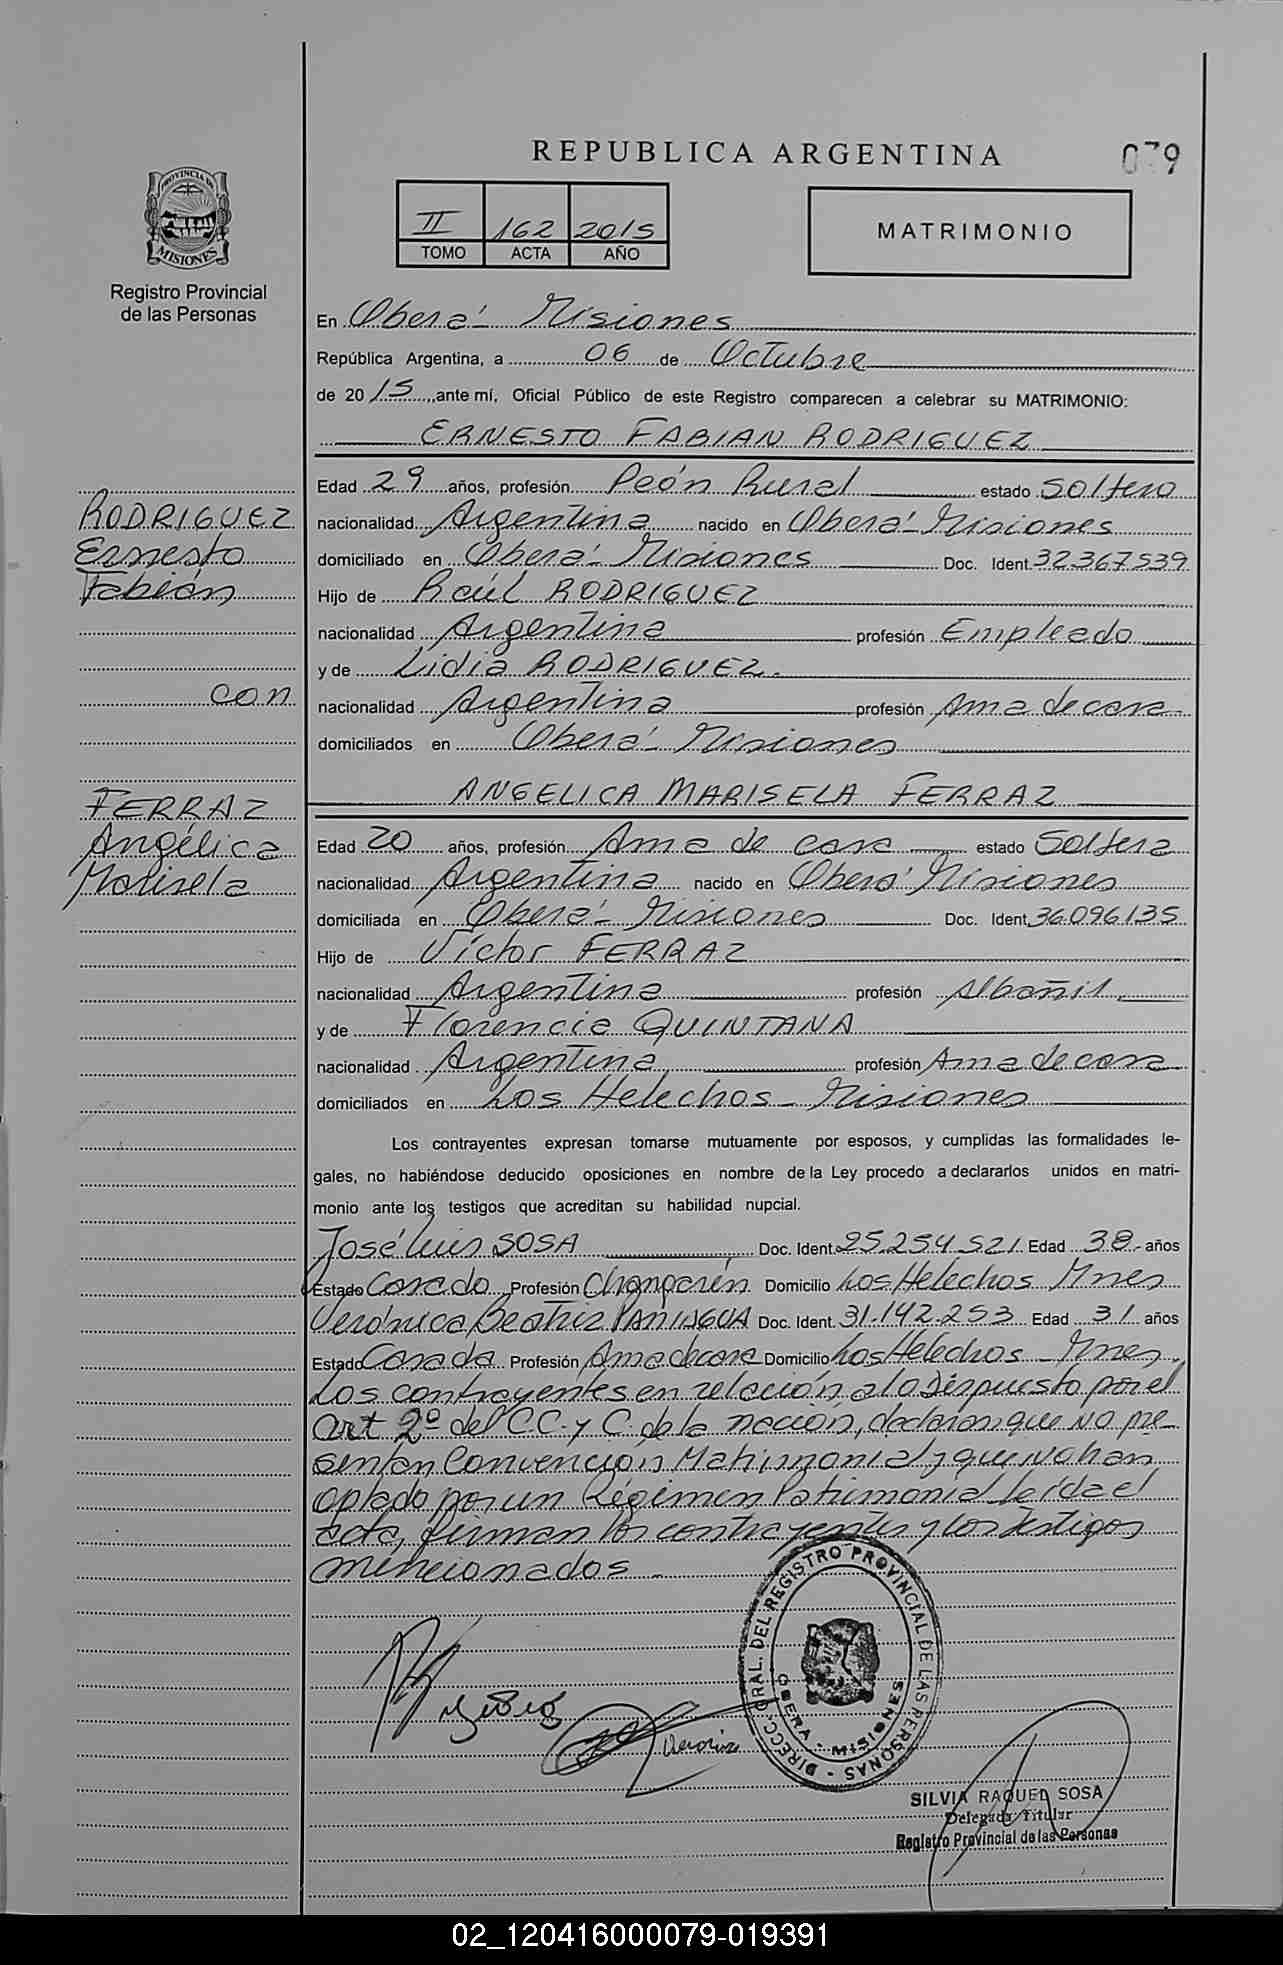 REPUBLICA ARGENTINA
079
II 162 2015
TOMO ACTA AÑO
MATRIMONIO
PROVINCIA DE
MISIONES
Registro Provincial
de las Personas
En Oberá - Misiones
República Argentina, a 06 de Octubre
de 2015, ante mí, Oficial Público de este Registro comparecen a celebrar su MATRIMONIO:
ERNESTO FABIAN RODRIGUEZ
RODRIGUEZ
Ernesto
Fabián
con
FERRAZ
Angélica
Marisela
Edad 29 años, profesión Peón Rural estado Soltero
nacionalidad Argentina nacido en Oberá - Misiones
domiciliado en Oberá - Misiones Doc. Ident. 32367539
Hijo de Raúl RODRIGUEZ
nacionalidad Argentina profesión Empleado
y de Lidia RODRIGUEZ.
nacionalidad Argentina profesión Ama de casa
domiciliados en Oberá - Misiones
ANGELICA MARISELA FERRAZ
Edad 20 años, profesión Ama de casa estado Soltera
nacionalidad Argentina nacido en Oberá Misiones
domiciliada en Oberá - Misiones Doc. Ident. 36.096.135
Hijo de Víctor FERRAZ
nacionalidad Argentina profesión Albañil
y de Florencia QUINTANA
nacionalidad Argentina profesión Ama de casa
domiciliados en Los Helechos - Misiones
Los contrayentes expresan tomarse mutuamente por esposos, y cumplidas las formalidades le-
gales, no habiéndose deducido oposiciones en nombre de la Ley procedo a declararlos unidos en matri-
monio ante los testigos que acreditan su habilidad nupcial.
José Luis SOSA Doc. Ident. 25.254.521 Edad 38 años
Estado Casado Profesión Chamarén Domicilio Los Helechos Mnes
Verónica Beatriz PANIAGUA Doc. Ident. 31.142.253 Edad 31 años
Estado Casada Profesión Ama de casa Domicilio Los Helechos - Mnes.
Los contrayentes en relación a lo Dispuesto por el
art 2º del C.C. y C. de la nación, declaran que NO pre
sentan Convención Matrimonial y que NO han
optado por un Régimen Patrimonial leída el
acta, firman los contrayentes y los testigos
mencionados.
DIRECC. GRAL. DEL REGISTRO PROVINCIAL DE LAS PERSONAS
OBERA - MISIONES
SILVIA RAQUEL SOSA
Delegada Titular
Registro Provincial de las Personas
02_120416000079-019391